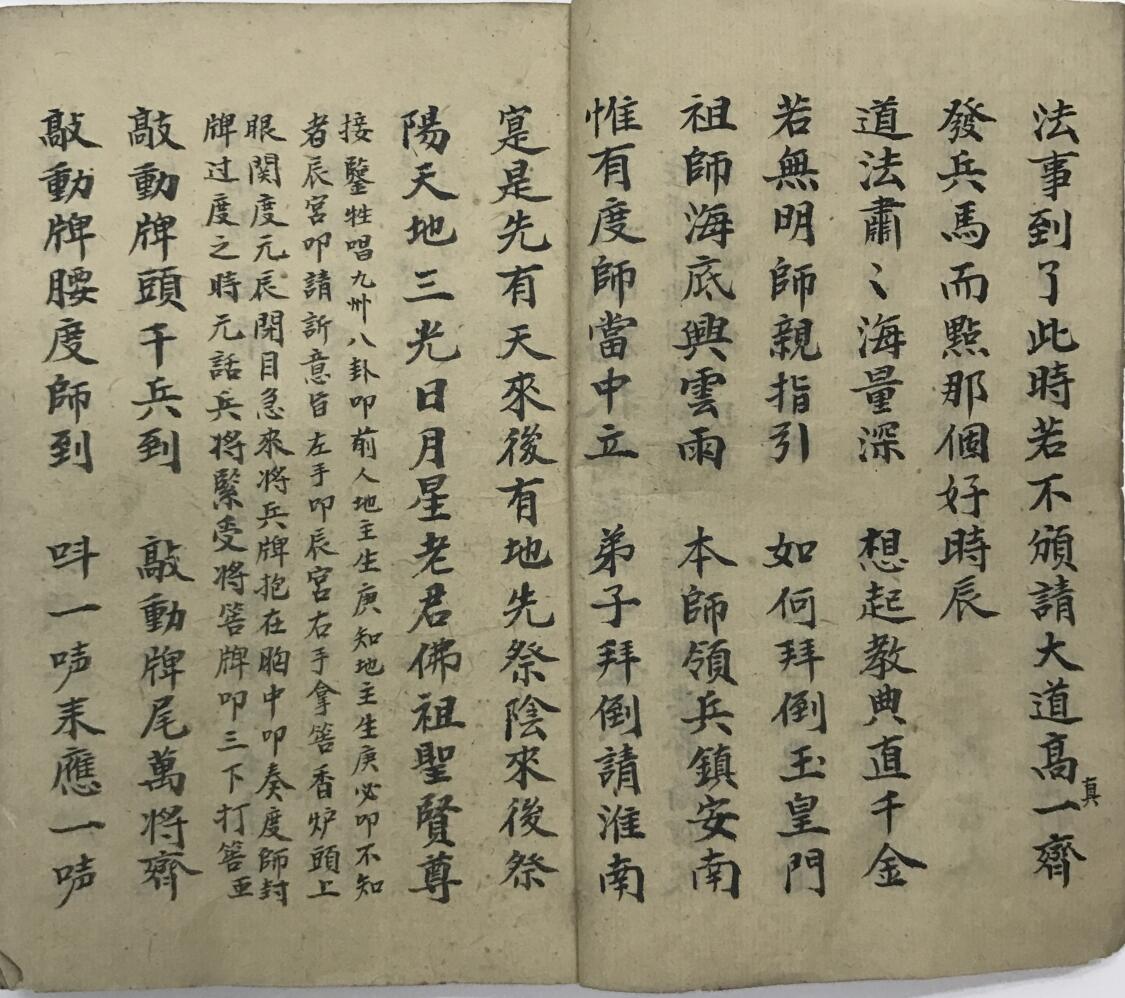 法事到了此時若不頒請大道高真一齊
發兵馬而點那個好時辰
道法肅〻海量深 想起教典直千金
若無明師親指引 如何拜倒玉皇門
祖師海底興雲雨 本師領兵鎮安南
惟有度師當中立 弟子拜倒請淮南
寔是先有天來後有地先祭陰來後祭
陽天地三光日月星老君佛祖聖賢尊
接鑒牲唱九州八卦叩前人地主生庚知地主生庚必叩不知
者辰宮叩請訴意旨左手叩辰宮右手拿筶香炉頭上
眼関度元辰閉目急來將兵牌抱在胸中叩奏度師封
牌过度之時元話兵将緊受将筶牌叩三下打筶亚
敲動牌頭千兵到 敲動牌尾萬將齊
敲動牌腰度師到 呌一唥来應一唥